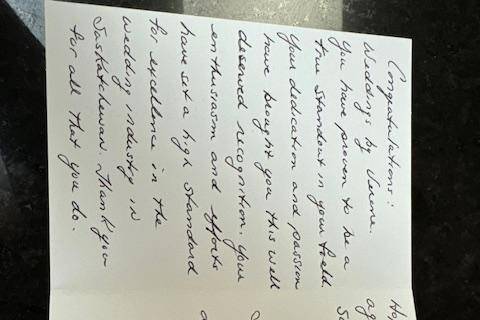 Congratulations:
Weddings by
You have proven to be a
true standout in your field
Your dedication and passion
have brought you this well
deserved recognition. Your
enthusiasm and efforts
have set a high standard
for excellence in the
wedding industry in
Saskatchewan. Thank you
for all that you do.